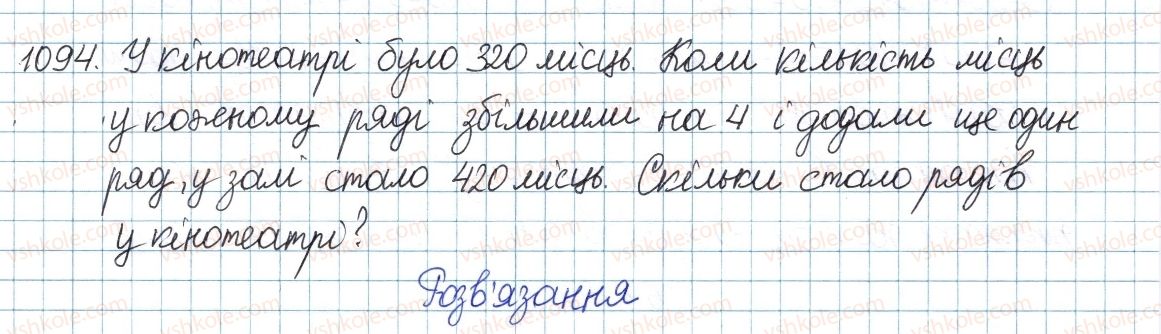 1094. У кінотеатрі було 320 місць. Коли кількість місць
у кожному ряді збільшили на 4 і додали ще один
ряд, у залі стало 420 місць. Скільки стало рядів
у кінотеатрі?
Розв'язання